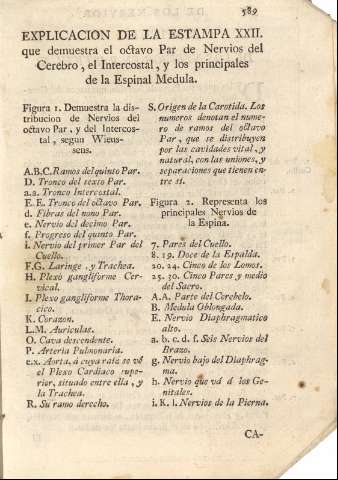 589
EXPLICACION DE LA ESTAMPA XXII.
que demuestra el octavo Par de Nervios del
Cerebro, el Intercostal, y los principales
de la Espinal Medula.
Figura 1. Demuestra la dis-
tribucion de Nervios del
octavo Par, y del Intercos-
tal, segun Wieus-
sens.
A.B.C. Ramos del quinto Par.
D. Tronco del sexto Par.
a.a. Tronco Intercostal.
E. E. Tronco del octavo Par.
d. Fibras del nono Par.
e. Nervio del decimo Par.
f. Progreso del quinto Par.
i. Nervio del primer Par del
Cuello.
F.G. Laringe, y Trachea.
H. Plexô gangliforme Cer-
vical.
I. Plexô gangliforme Thora-
cico.
K. Corazon.
L.M. Auriculas.
O. Cava descendente.
P. Arteria Pulmonaria.
c.x. Aorta, á cuya raíz se vé
el Plexo Cardiaco supe-
rior, situado entre ella, y
la Trachea.
R. Su ramo derecho.
S. Origen de la Carotida. Los
numeros denotan el nume-
ro de ramos del octavo
Par, que se distribuyen
por las cavidades vital, y
natural, con las uniones, y
separaciones que tienen en-
tre sí.
Figura 2. Representa los
principales Nervios de
la Espina.
7. Pares del Cuello.
8. 19. Doce de la Espalda.
20. 24. Cinco de los Lomos.
25. 30. Cinco Pares y medio
del Sacro.
A.A. Parte del Cerebelo.
B. Medula Oblongada.
E. Nervio Diaphragmatico
alto.
a. b. c. d. f. Seis Nervios del
Brazo.
g. Nervio bajo del Diaphrag-
ma.
h. Nervio que vá á los Ge-
nitales.
i. K. l. Nervios de la Pierna.
CA-